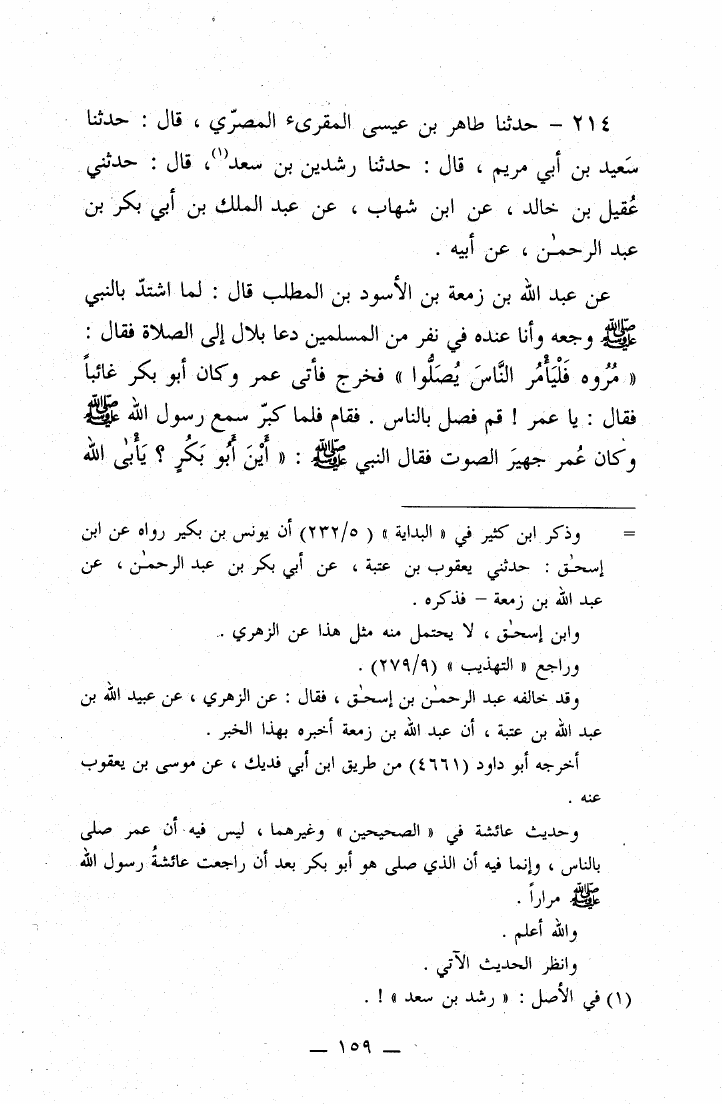 ٢١٤ – حدثنا طاهر بن عيسى المقرىء المصرّي ، قال : حدثنا
سَعيد بن أبي مريم ، قال : حدثنا رشدين بن سعد(١)، قال : حدثني
عُقيل بن خالد ، عن ابن شهاب ، عن عبد الملك بن أبي بكر بن
عبد الرحمـٰن ، عن أبيه .
عن عبد الله بن زمعة بن الأسود بن المطلب قال : لما اشتدّ بالنبي
ﷺ وجعه وأنا عنده في نفر من المسلمين دعا بلال إلى الصلاة فقال :
« مُرُوه فَلْيَأْمُر النَّاسَ يُصَلُّوا » فخرج فأتى عمر وكان أبو بكر غائباً
فقال : يا عمر ! قم فصل بالناس . فقام فلما كبرّ سمع رسول الله ﷺ
وكان عُمر جهيرَ الصوت فقال النبي ﷺ : « أَيْنَ أَبُو بَكُرٍ ؟ يَأْبٰى الله
= وذكر ابن كثير في « البداية » ( ٢٣٢/٥) أن يونس بن بكير رواه عن ابن
إسحـٰق : حدثني يعقوب بن عتبة ، عن أبي بكر بن عبد الرحمـٰن ، عن
عبد الله بن زمعة – فذكره .
وابن إسحـٰق ، لا يحتمل منه مثل هذا عن الزهري .
وراجع « التهذيب » (٢٧٩/٩) .
وقد خالفه عبد الرحمـٰن بن إسحـٰق ، فقال : عن الزهري ، عن عبيد الله بن
عبد الله بن عتبة ، أن عبد الله بن زمعة أخبره بهذا الخبر .
أخرجه أبو داود (٤٦٦١) من طريق ابن أبي فديك ، عن موسى بن يعقوب
عنه .
وحديث عائشة في « الصحيحين » وغيرهما ، ليس فيه أن عمر صلى
بالناس ، وإنما فيه أن الذي صلى هو أبو بكر بعد أن راجعت عائشةُ رسول الله
ﷺ مراراً .
والله أعلم .
وانظر الحديث الآتي .
(١) في الأصل : « رشد بن سعد » ! .
— ١٥٩ —